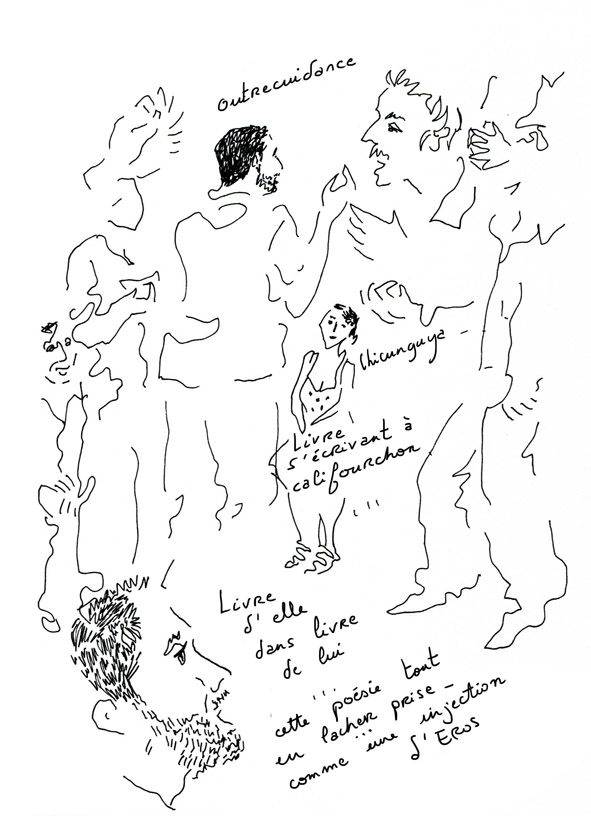 outrecuidance
Chicunguya
Livre
s'écrivant à
califourchon
Livre
d'elle
dans livre
de lui
cette poésie tout
en lacher prise –
comme une injection
d'EROS